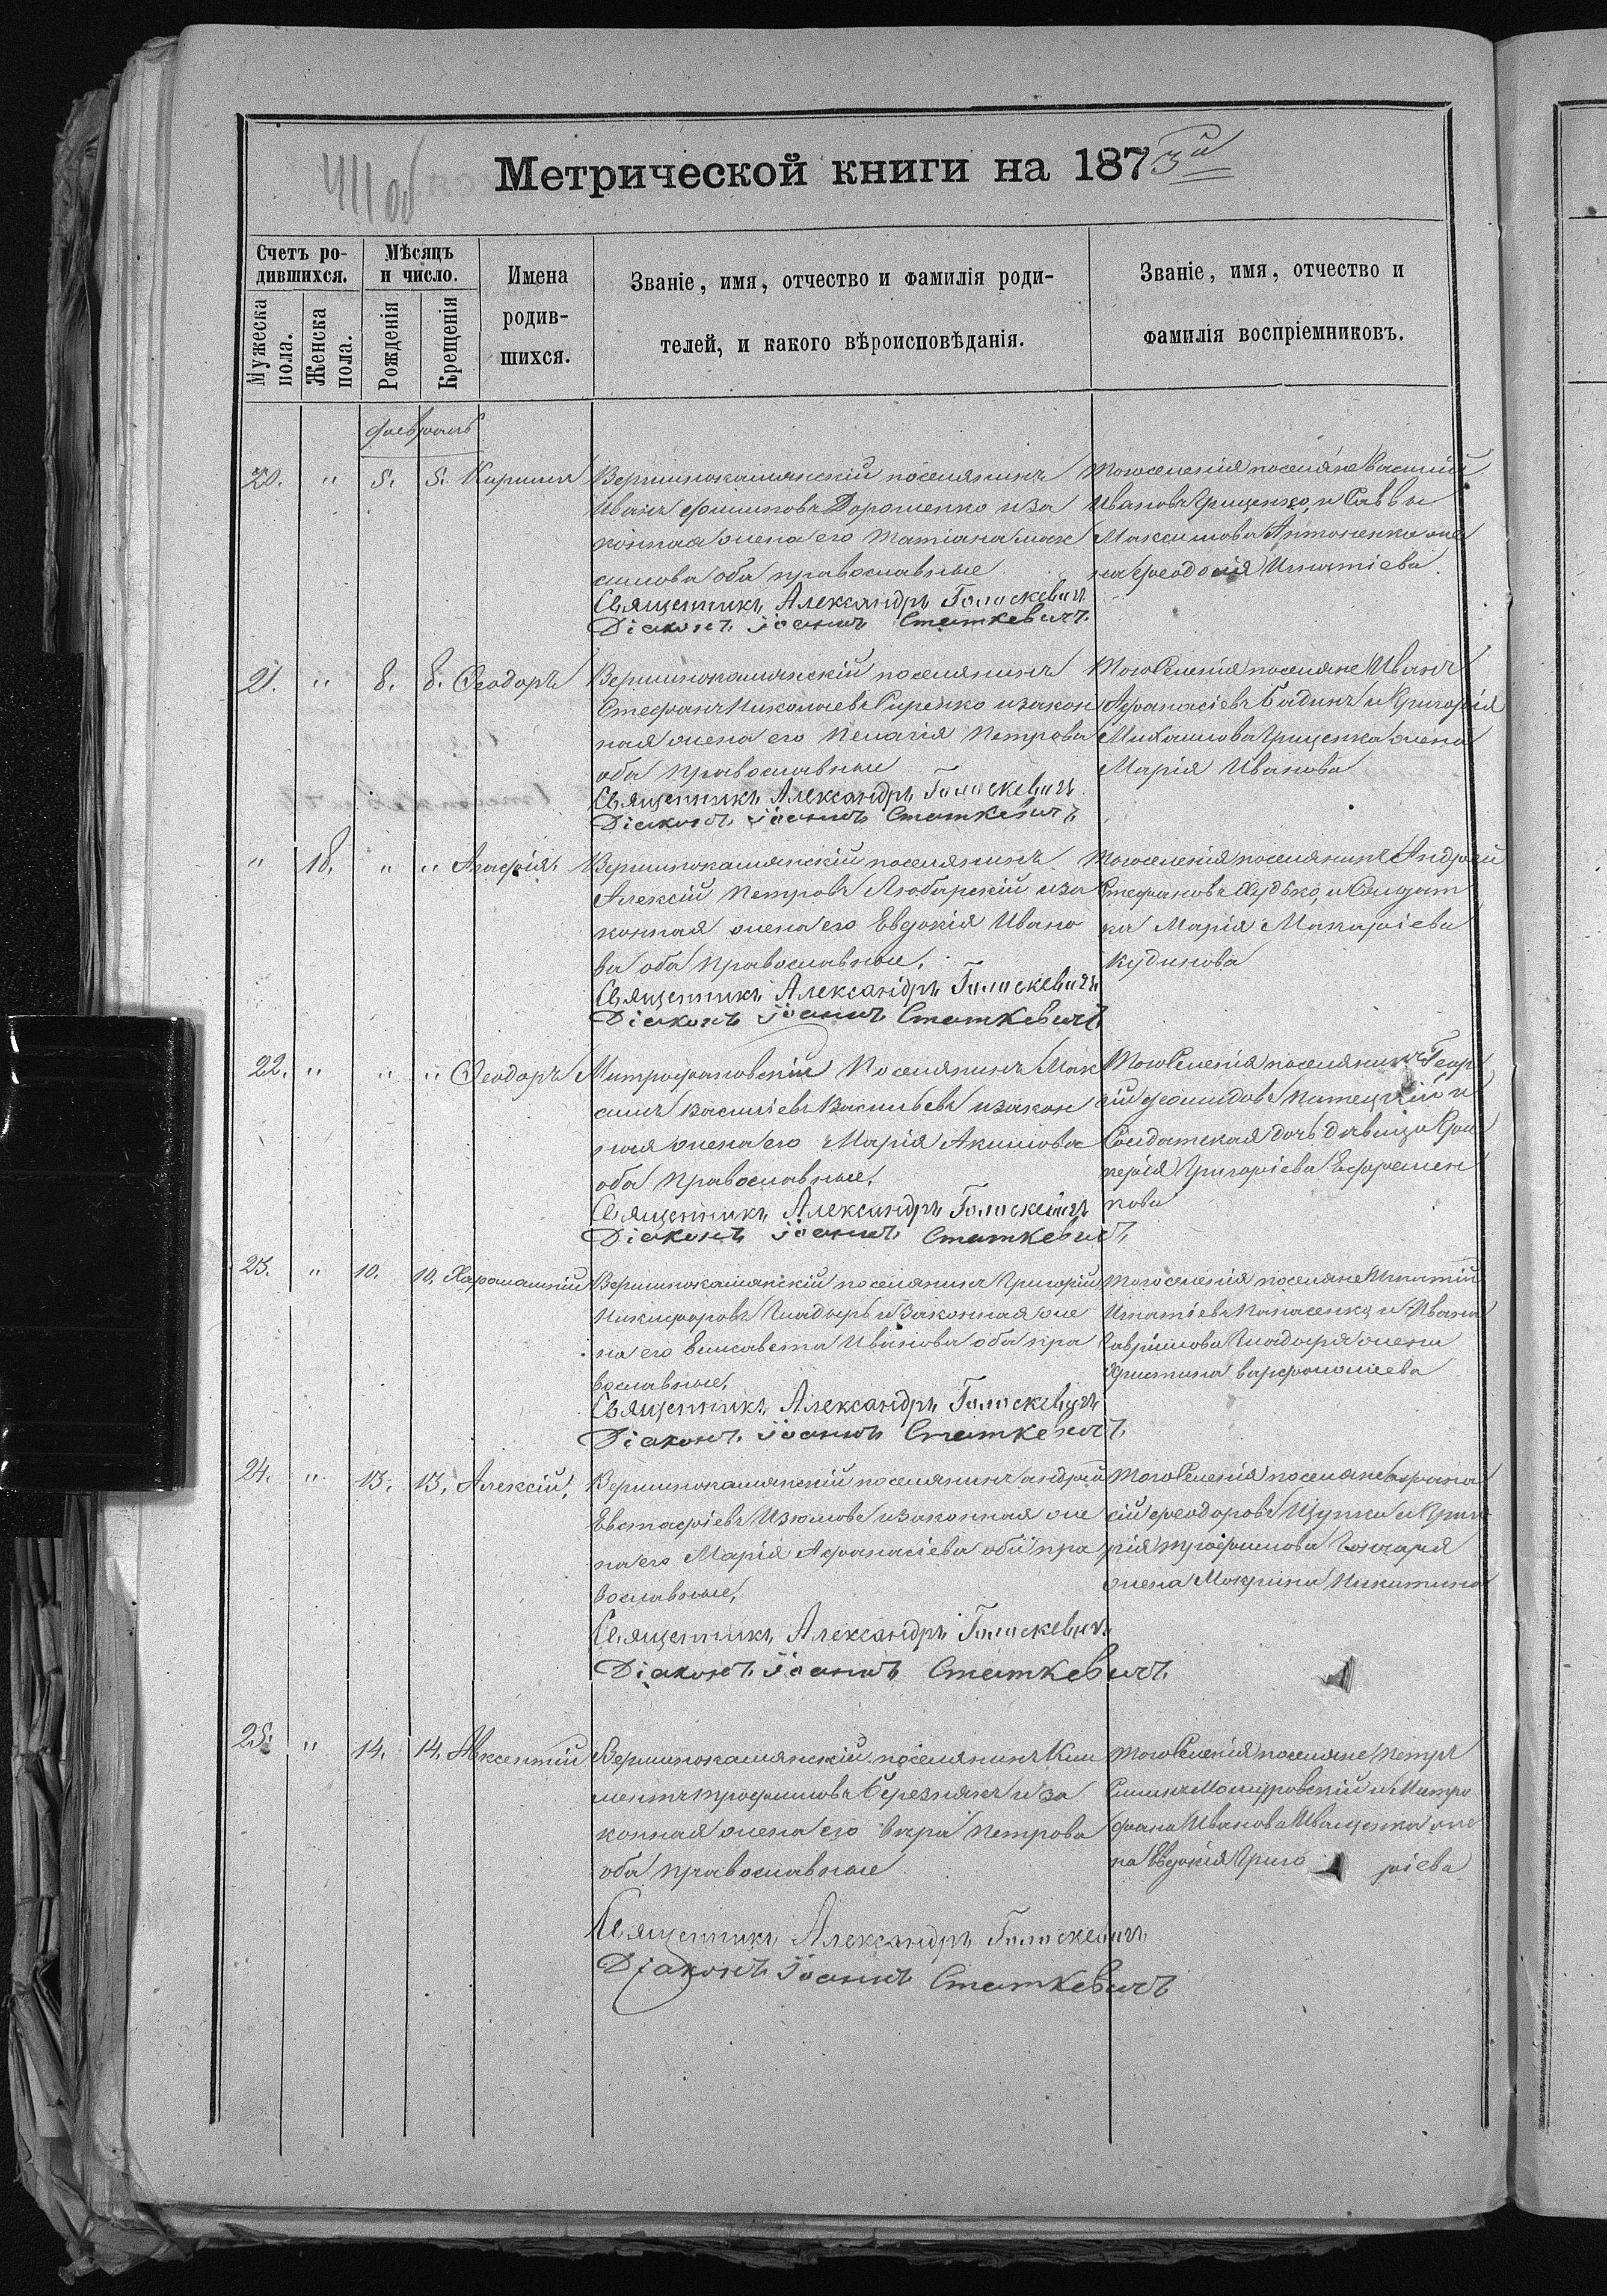 411 об
Метрической книги на 1873й
Счетъ ро-
дившихся.
Мужеска пола.
Женска пола.
Мѣсяцъ
и число.
Рожденія
Крещенія
Имена
родив-
шихся.
Званіе, имя, отчество и фамилія роди-
телей, и какого вѣроисповѣданія.
Званіе, имя, отчество и
фамилія воспріемниковъ.
февраль
20. " 5. 5. Кириллъ
Вершинокамянскій поселянинъ
Иванъ Филиповъ Дорошенко и за
конная жена его Татіана Мак
симова оба православные
Священникъ Александръ Голоскевичъ
Діаконъ Іоаннъ Статкевичъ
Тогоселенія поселяне Василий
Ивановъ Грищенко, и Саввы
Максимова Антоненка же
на Феодосія Игнатіева
21. " 8. 8. Ѳеодоръ
Вершинокамянскій поселянинъ
Стефанъ Николаевъ Сиренко и закон
ная жена его Пелагія Петрова
оба православные
Священникъ Александръ Голоскевичъ
Діаконъ Іоаннъ Статкевичъ
Того Селенія поселяне Иванъ
Афанасіевъ Бадинъ и Григорія
Михаилова Грищенка жена
Марія Иванова
" 18. " " Агафія,
Вершинокамянскій поселянинъ
Алексій Петровъ Любарскій и за
конная жена его Евдокія Ивано
ва оба православные,
Священникъ Александръ Голоскевичъ
Діаконъ Іоаннъ Статкевичъ
Тогоселенія поселянинъ Андрей
Стефановъ Худько, и Солдат
ка Марія Макаріева
Кудинова
22. " " " Ѳеодоръ
Митрофановскій Поселянинъ Мак
симъ Василіевъ Васильевъ и закон
ная жена его Марія Акимова
оба православные,
Священникъ Александръ Голоскевичъ
Діаконъ Іоаннъ Статкевичъ
Того Селенія поселянинъ Геор
гій Леонидовъ и
Солдатская дочь дѣвица
Григоріева Ефремен
кова
23. " 10. 10. Харлампій
Вершинокамянскій поселянинъ Григорій
Никифоровъ Гладырь и Законная же
на его Елисавета Иванова оба пра
вославные,
Священникъ Александръ Голоскевичъ
Діаконъ Іоаннъ Статкевичъ
Тогоселенія поселяне Игнатій
Игнатіевъ Панасенко и Ивана
Гавріилова Гладыря жена
Христина Варфоломеева
24. " 13. 13. Алексій,
Вершинокамянскій поселянинъ Андрей
Евстафіевъ Изюмовъ и Законная же
на его Марія Афанасіева оба пра
вославные,
Священникъ Александръ Голоскевичъ
Діаконъ Іоаннъ Статкевичъ
Того Селенія поселяне Афана
сій Феодоровъ Щупка и Григо
рія Трофимова Гончаря
жена Мокрина Никитина
25. " 14. 14. Авксентий
Вершинокамянскій поселянинъ Кли
ментъ Трофимовъ Березнякъ и за
конная жена его Вѣра Петрова
оба православные
Священникъ Александръ Голоскевичъ
Діаконъ Іоаннъ Статкевичъ
Того Селенія поселяне Петръ
и Митро
фана Иванова Иващенка же
на Евдокія Григо ріева